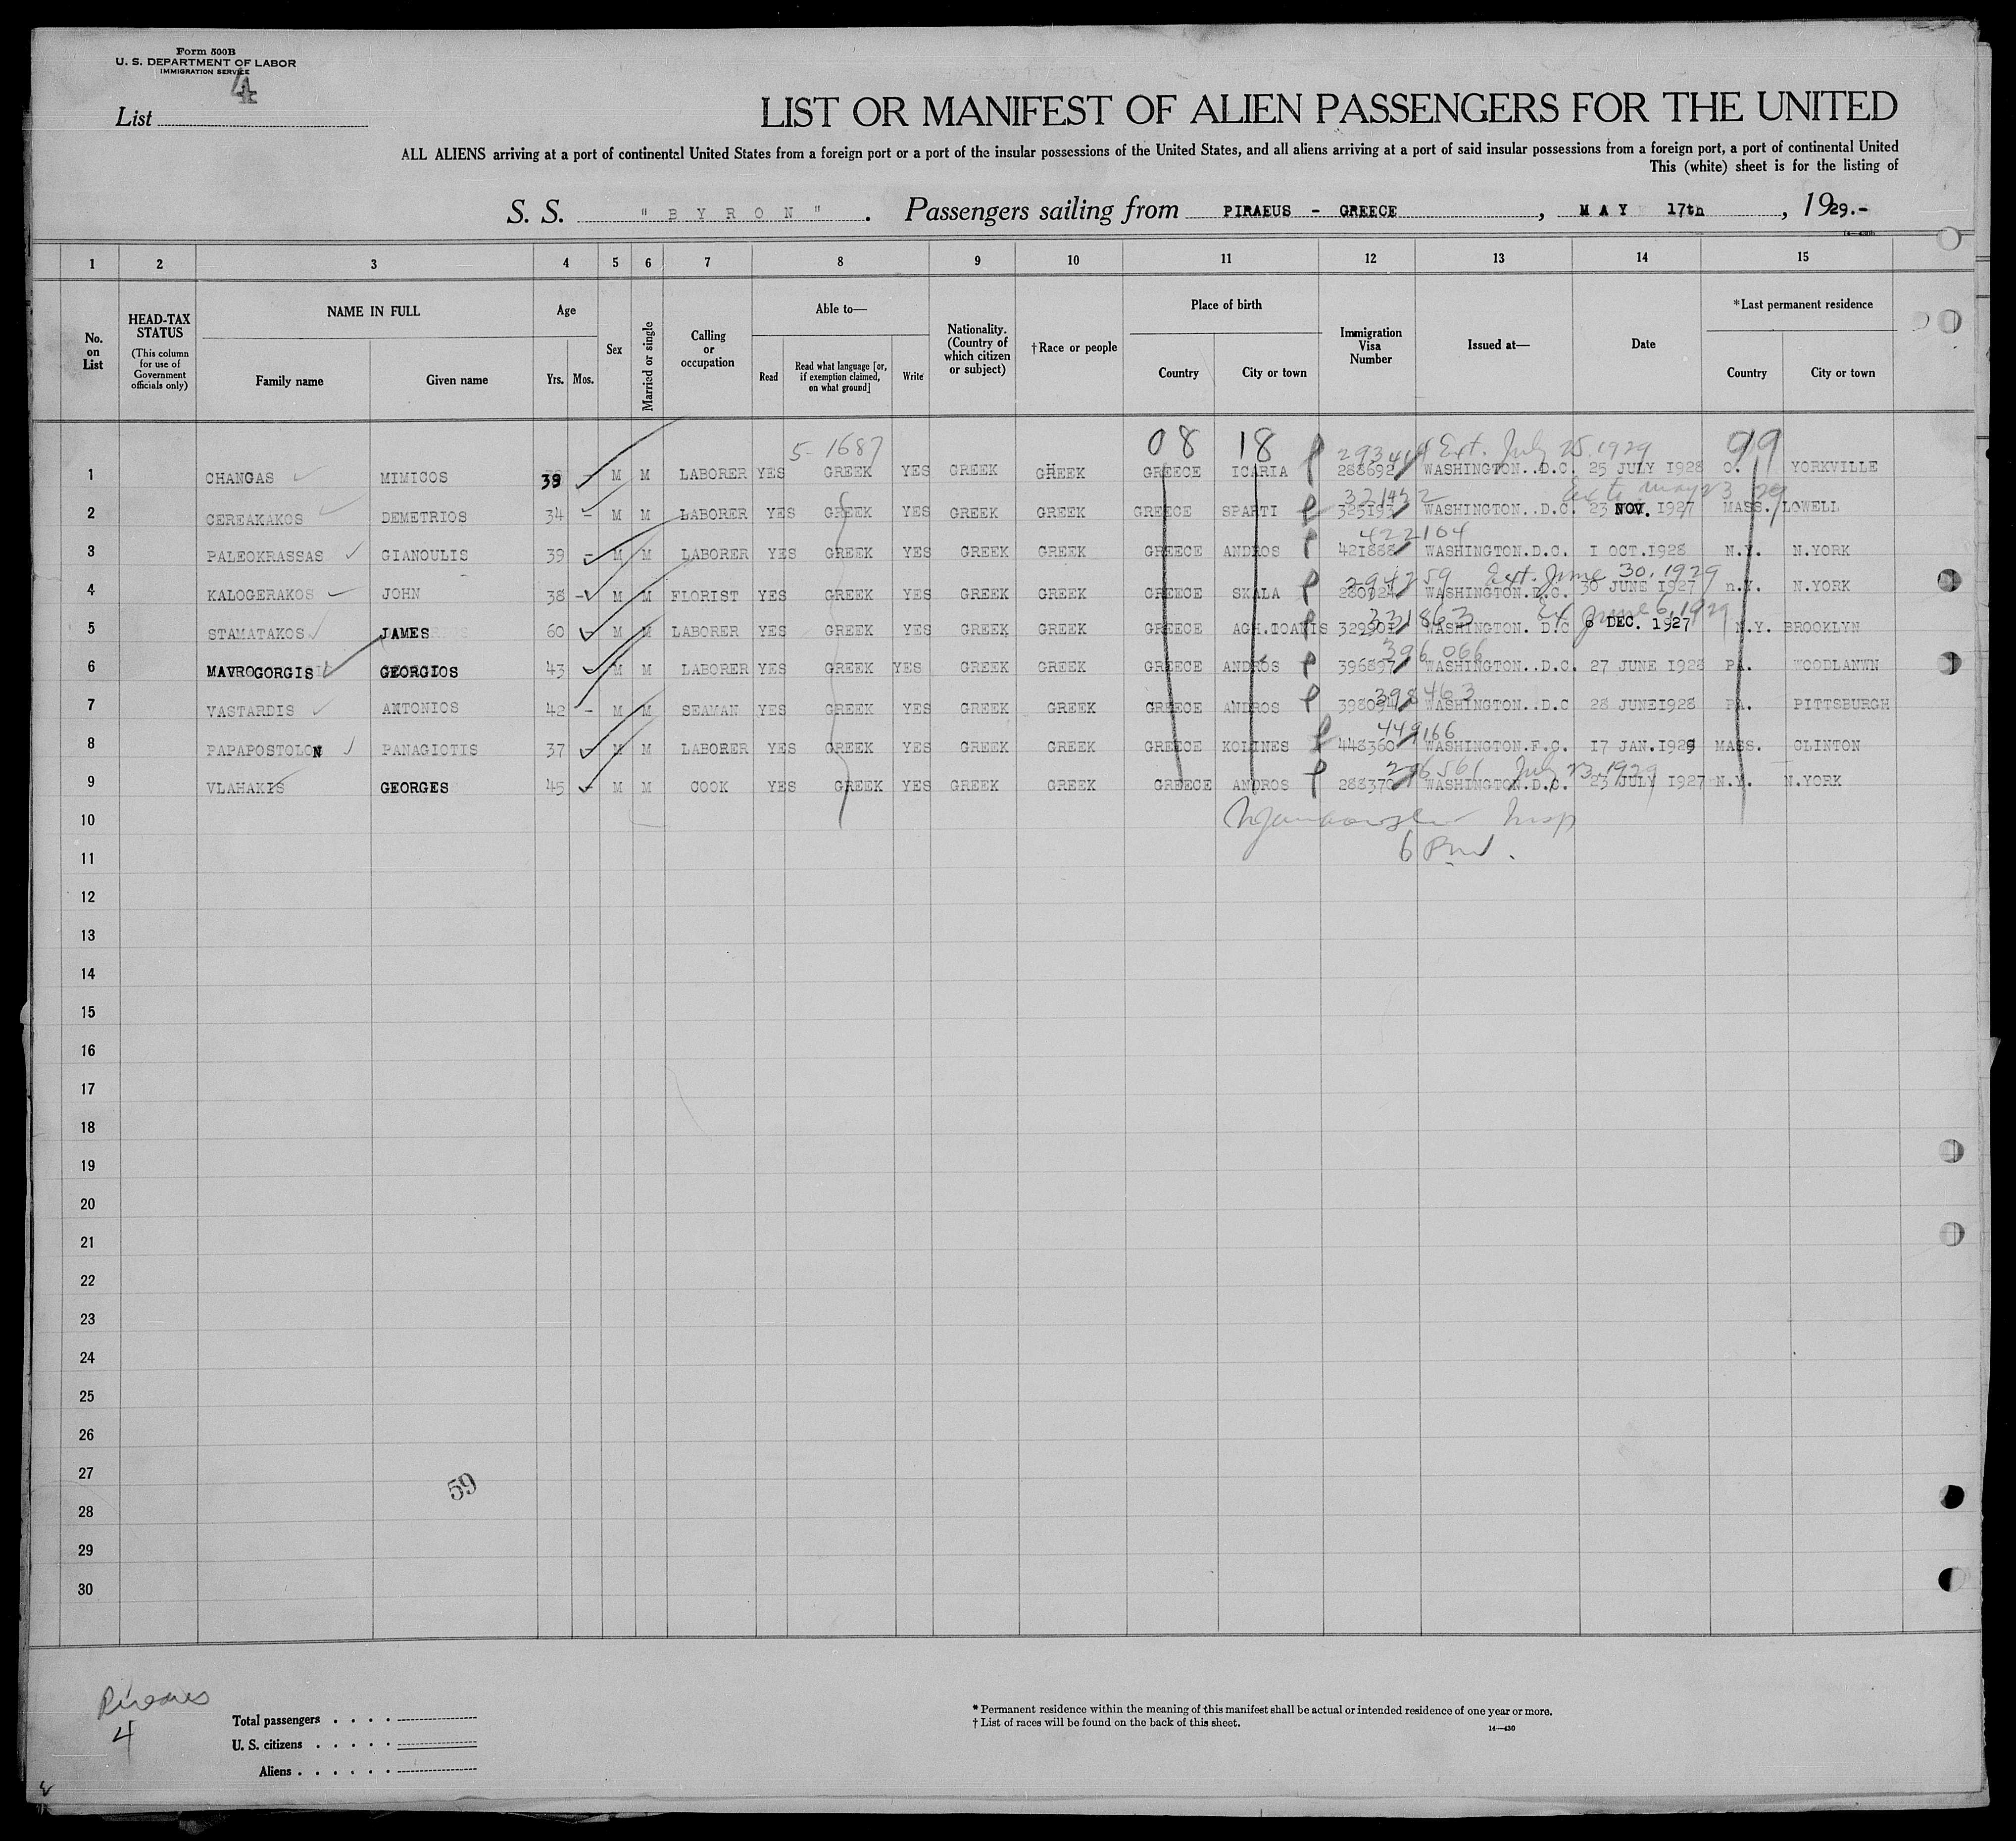 Form 500B
U. S. DEPARTMENT OF LABOR
IMMIGRATION SERVICE
4
List
LIST OR MANIFEST OF ALIEN PASSENGERS FOR THE UNITED
ALL ALIENS arriving at a port of continental United States from a foreign port or a port of the insular possessions of the United States, and all aliens arriving at a port of said insular possessions from a foreign port, a port of continental United
This (white) sheet is for the listing of
S. S. "BYRON". Passengers sailing from PIRAEUS - GREECE, MAY 17th, 1929.-
1 2 3 4 5 6 7 8 9 10 11 12 13 14 15
No. on List
HEAD-TAX STATUS
(This column for use of Government officials only)
NAME IN FULL
Family name Given name
Age
Yrs. Mos.
Sex
Married or single
Calling or occupation
Able to—
Read
Read what language [or, if exemption claimed, on what ground]
Write
Nationality. (Country of which citizen or subject)
†Race or people
Place of birth
Country City or town
Immigration Visa Number
Issued at—
Date
*Last permanent residence
Country City or town
5-1687 08 18 293414 Ext. July 25.1929 99
1 CHANGAS MIMICOS 39 - M M LABORER YES GREEK YES GREEK GREEK GREECE ICARIA 288692 WASHINGTON..D.C. 25 JULY 1928 O. YORKVILLE
321432 may 23
2 CEREAKAKOS DEMETRIOS 34 - M M LABORER YES GREEK YES GREEK GREEK GREECE SPARTI 325193 WASHINGTON..D.C. 23 NOV. 1927 MASS. LOWELL
422104
3 PALEOKRASSAS GIANOULIS 39 - M M LABORER YES GREEK YES GREEK GREEK GREECE ANDROS 421888 WASHINGTON.D.C. 1 OCT.1928 N.Y. N.YORK
294259 Ext. June 30, 1929
4 KALOGERAKOS JOHN 38 - M M FLORIST YES GREEK YES GREEK GREEK GREECE SKALA WASHINGTON.D.C. 30 JUNE 1927 n.Y. N.YORK
331863 Ex June 6, 1929
5 STAMATAKOS JAMES 60 M M LABORER YES GREEK YES GREEK GREEK GREECE AGH.IOANIS WASHINGTON. D.C 6 DEC. 1927 N.Y. BROOKLYN
396066
6 MAVROGORGIS GEORGIOS 43 M M LABORER YES GREEK YES GREEK GREEK GREECE ANDROS 396897 WASHINGTON..D.C. 27 JUNE 1928 PA. WOODLANWN
398463
7 VASTARDIS ANTONIOS 42 - M M SEAMAN YES GREEK YES GREEK GREEK GREECE ANDROS WASHINGTON..D.C 28 JUNE1928 PA. PITTSBURGH
449166
8 PAPAPOSTOLON PANAGIOTIS 37 M M LABORER YES GREEK YES GREEK GREEK GREECE KOLINES 448360 WASHINGTON.F.C. 17 JAN.1929 MASS. CLINTON
296561 July 23.1929
9 VLAHAKIS GEORGES 45 M M COOK YES GREEK YES GREEK GREEK GREECE ANDROS 288370 WASHINGTON.D.C. 23 JULY 1927 N.Y. N.YORK
10 Insp
11 6
12
13
14
15
16
17
18
19
20
21
22
23
24
25
26
27
59
28
29
30
Piraeus
4
Total passengers . . . .
U. S. citizens . . . . .
Aliens . . . . . .
* Permanent residence within the meaning of this manifest shall be actual or intended residence of one year or more.
† List of races will be found on the back of this sheet.
14—430